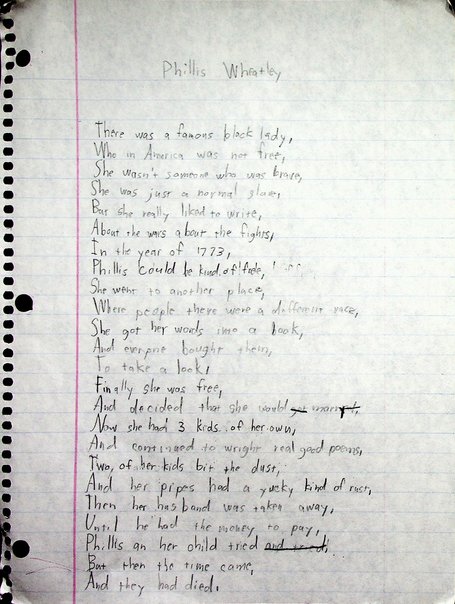 Phillis Wheatley
There was a famous black lady,
Who in America was not free,
She wasn't someone who was brave,
She was just a normal slave,
But she really liked to write,
About the wars about the fights,
In the year of 1773,
Phillis could be kind of
She went to another place,
Where people there were a different race,
She got her words into a book,
And everyone bought them,
To take a look,
Finally she was free,
And decided that she would marry,
Now she had 3 kids of her own,
And continued to wright real good poems,
Two of her kids bit the dust,
And her pipes had a yucky kind of rust,
Then her husband was taken away,
Until he had the money to pay,
Phillis an her child tried and tried,
But then the time came,
And they had died.